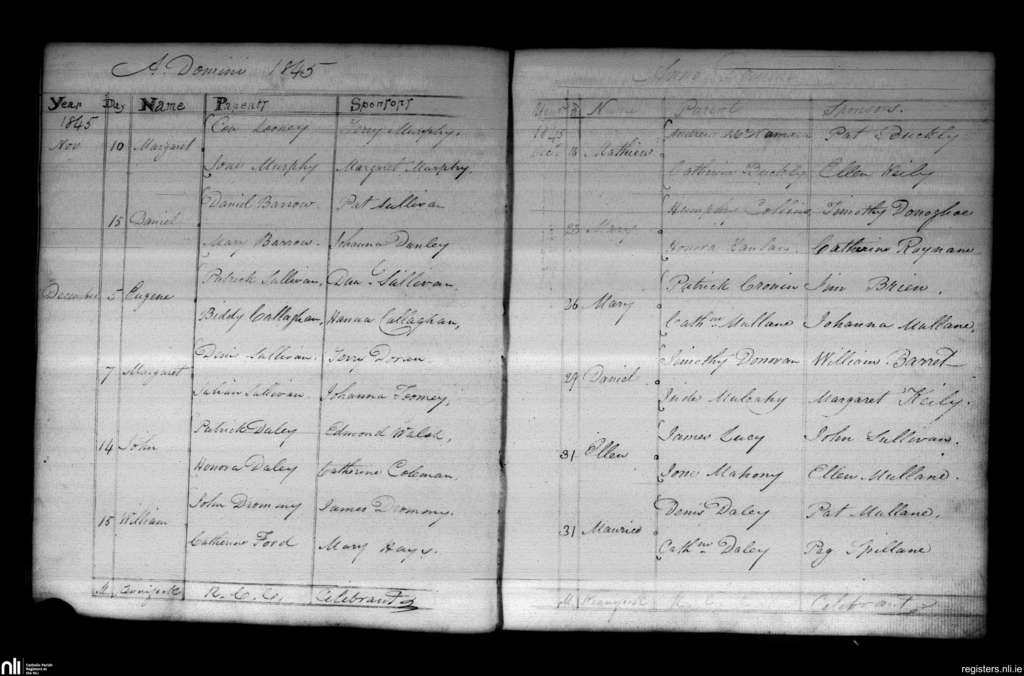 A. Domini 1845
Year Day Name Parents Sponsors
1845 Con Looney Jerry Murphy.
Nov 10 Margaret
Jone Murphy Margaret Murphy,
Daniel Barrow Pat Sullivan
15 Daniel
Mary Barrow. Johanna Danley
Patrick Sullivan, Danl Sullivan
December 5 Eugene
Biddy Callaghan, Hanna Callaghan,
Denis Sullivan. Jerry Doran
7 Margaret
Sullivan Johanna Toomey,
Patrick Daley Edmond Walsh,
14 John
Honora Daley Catherine Coleman
John Drommy James Drommy.
15 William
Catherine Ford Mary Hays.
M R. C. C. Celebrant
Anno Domini
Name Parent Sponsors.
1845 Andrew McNamara Pat Buckly
Decr 18 Mathiew
Catherine Buckly Ellen Keily
Humphry Collins Timothy Donoghoe
23 Mary
Honora Catherine
Patrick Cronin Jim Brien.
26 Mary
Cathne Mullane Johanna Mullane,
Timothy Donovan William Barret
29 Daniel
Jude Mulcahy Margaret Keily.
James Lucy John Sullivan.
31 Ellen
Jone Mahony Ellen Mullane.
Denis Daley Pat Mullane.
31 Maurice
Cathne Daley Peg Spillane
M R. C. C. Celebrant
nli Catholic Parish Registers at the NLI
registers.nli.ie